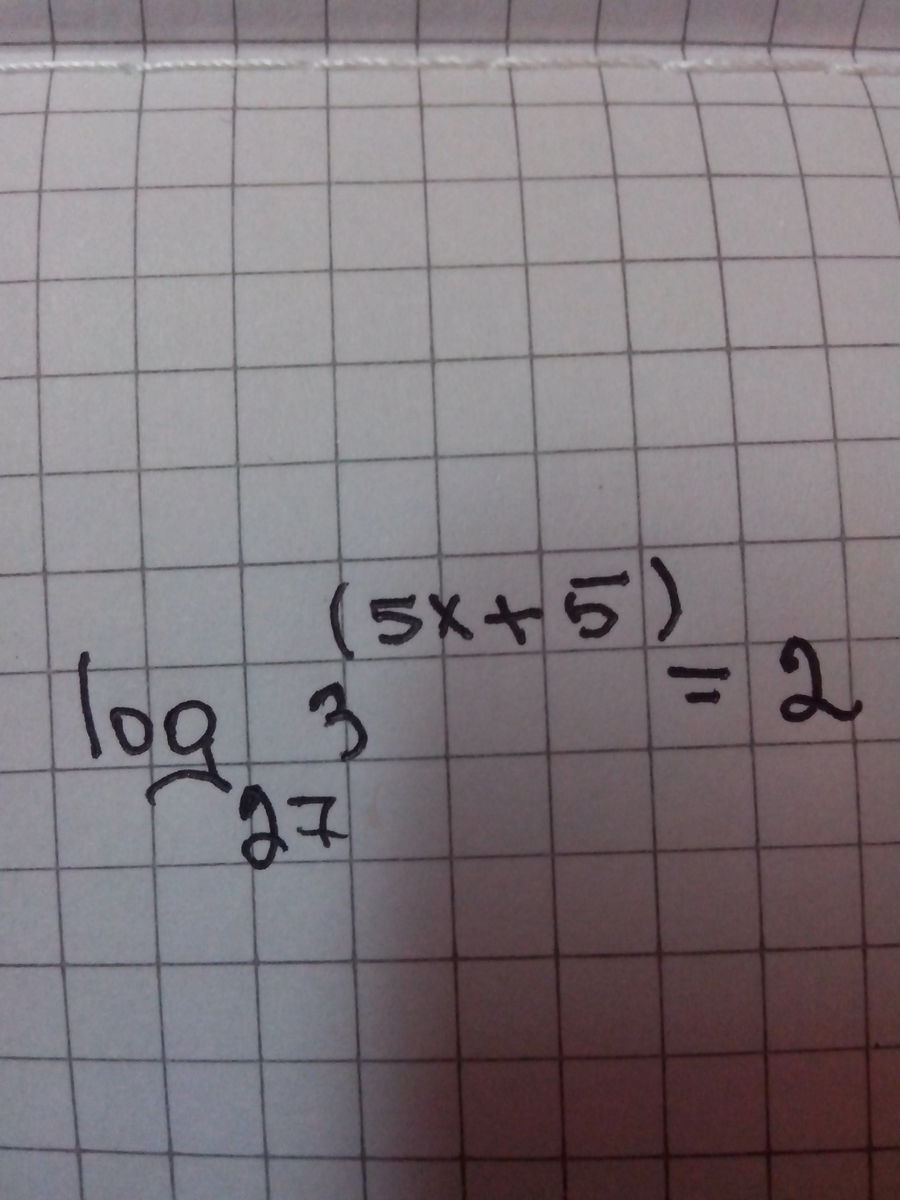 log₂₇ 3⁽⁵ˣ⁺⁵⁾ = 2